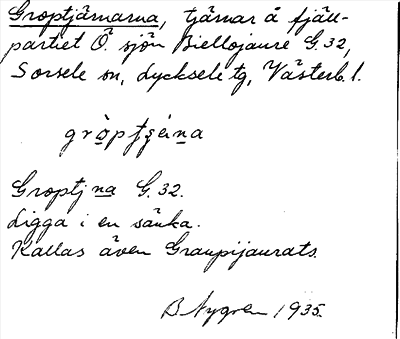 Groptjärnarna, tjärnar å fjäll-
partiet Ö. sjön Biellojaure G. 32,
Sorsele sn, Lycksele tg, Västerb. l.
Groptj na G. 32.
Ligga i en sänka.
Kallas även Graupijaurats.
B Nygren 1935.